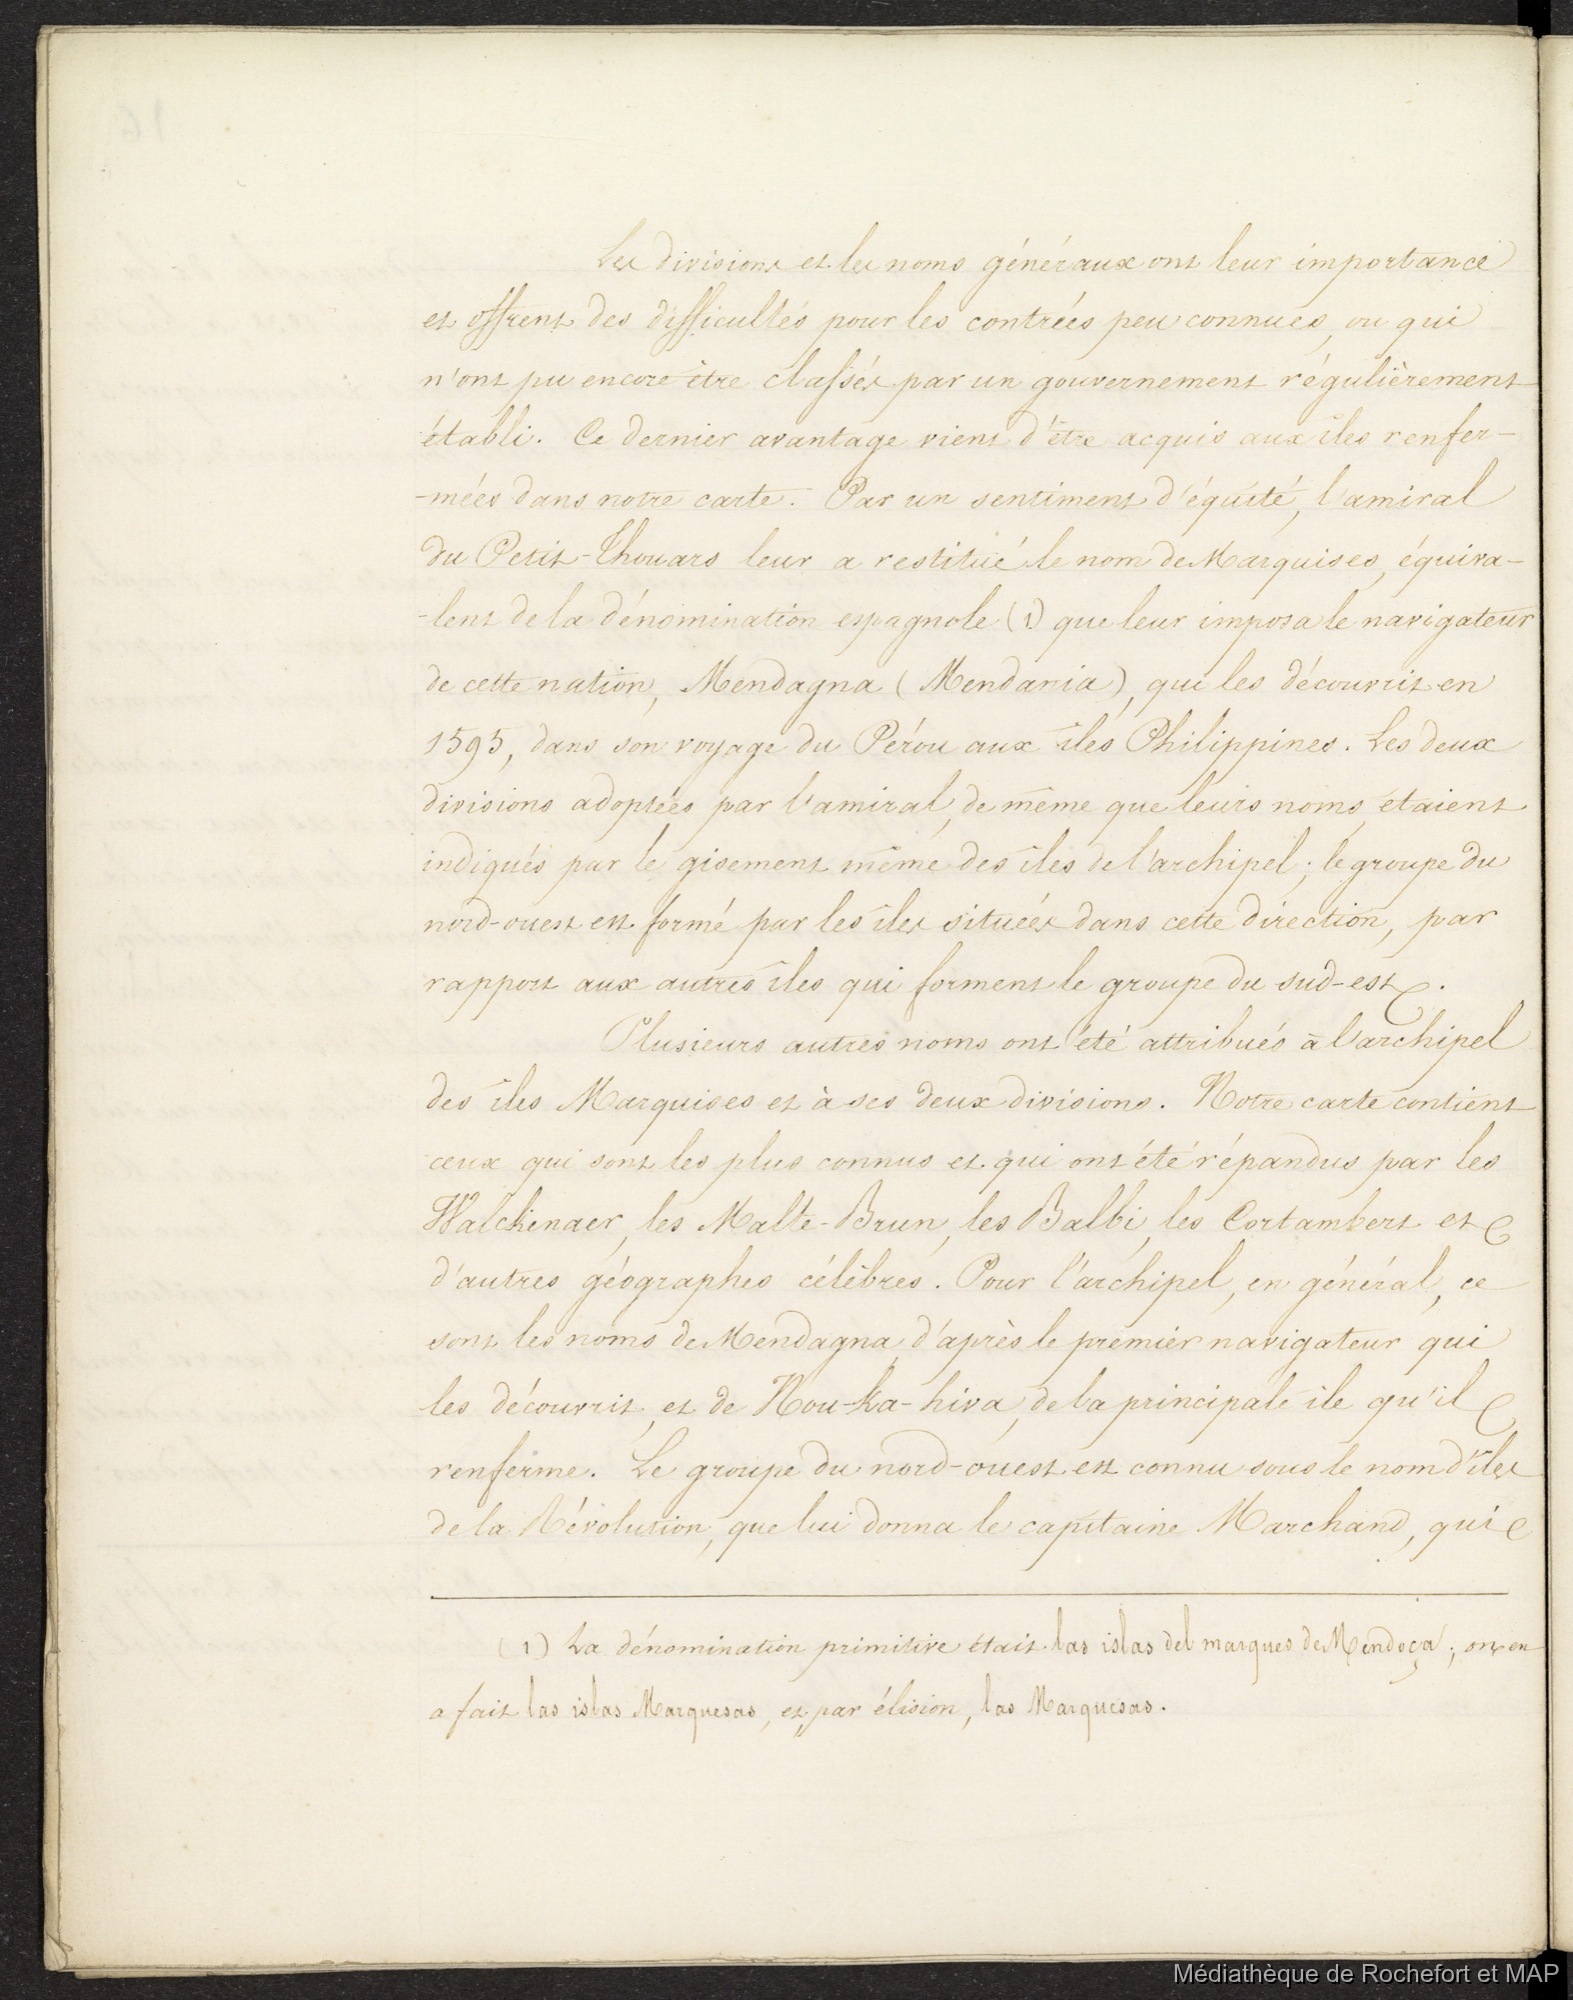 Les divisions et les noms généraux ont leur importance
et offrent des difficultés pour les contrées peu connues, ou qui
n'ont pu encore être classées par un gouvernement régulièrement
établi. Ce dernier avantage vient d'être acquis aux îles renfer-
-mées dans notre carte. Par un sentiment d'équité, l'amiral
du Petit-Thouars leur a restitué le nom de Marquises, équiva-
-lent de la dénomination espagnole (1) que leur imposa le navigateur
de cette nation, Mendagna (Mendania), qui les découvrit en
1595, dans son voyage du Pérou aux îles Philippines. Les deux
divisions adoptées par l'amiral, de même que leurs noms, étaient
indiqués par le gisement même des îles de l'archipel; le groupe du
nord-ouest est formé par les îles situées dans cette direction, par
rapport aux autres îles qui forment le groupe du sud-est.
Plusieurs autres noms ont été attribués à l'archipel
des îles Marquises et à ses deux divisions. Notre carte contient
ceux qui sont les plus connus et qui ont été répandus par les
Walckenaer, les Malte-Brun, les Balbi, les Cortambert et
d'autres géographes célèbres. Pour l'archipel, en général, ce
sont les noms de Mendagna, d'après le premier navigateur qui
les découvrit, et de Nou-ka-hiva, de la principale île qu'il
renferme. Le groupe du nord-ouest est connu sous le nom d'îles
de la Révolution, que lui donna le capitaine Marchand, qui
(1) La dénomination primitive était las islas del marques de Mendoça; on en
a fait las islas Marquesas, et, par élision, las Marquesas.
Médiathèque de Rochefort et MAP